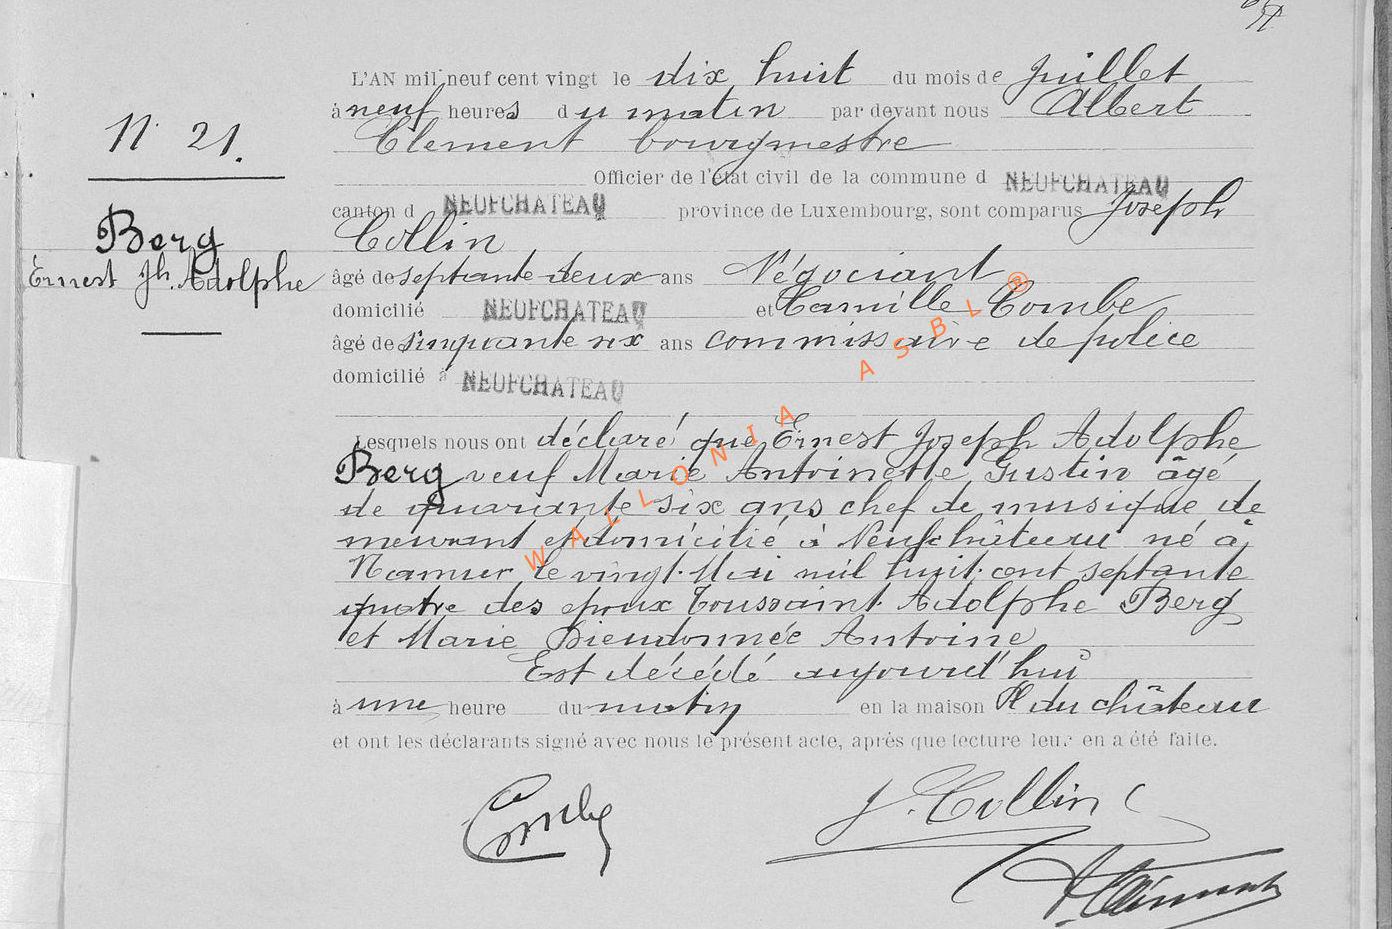 L'AN mil neuf cent vingt le dix huit du mois de juillet
à neuf heures du matin par devant nous Albert
Clement bourgmestre
Officier de l'état civil de la commune d NEUFCHATEAU
canton d NEUFCHATEAU province de Luxembourg, sont comparus Joseph
Collin
âgé de septante deux ans Négociant
domicilié NEUFCHATEAU et Camille Combe
âgé de sinquante six ans commissaire de police
domicilié à NEUFCHATEAU
Lesquels nous ont déclaré que Ernest Joseph Adolphe
Berg veuf Marie Antoinette Gustin âgé
de quarante six ans chef de musique de
meurant et domicilié à Neufchâteau né à
Namur le vingt Mai mil huit cent septante
quatre des epoux Toussaint Adolphe Berg
et Marie Dieudonnée Antoine
Est décédé aujourd'hui
à une heure du matin en la maison Pl du château
et ont les déclarants signé avec nous le présent acte, après que lecture leur en a été faite.
Combe J. Collin
A. Clément
N. 21.
Berg
Ernest Jh. Adolphe
WALLONIA ASBL ®